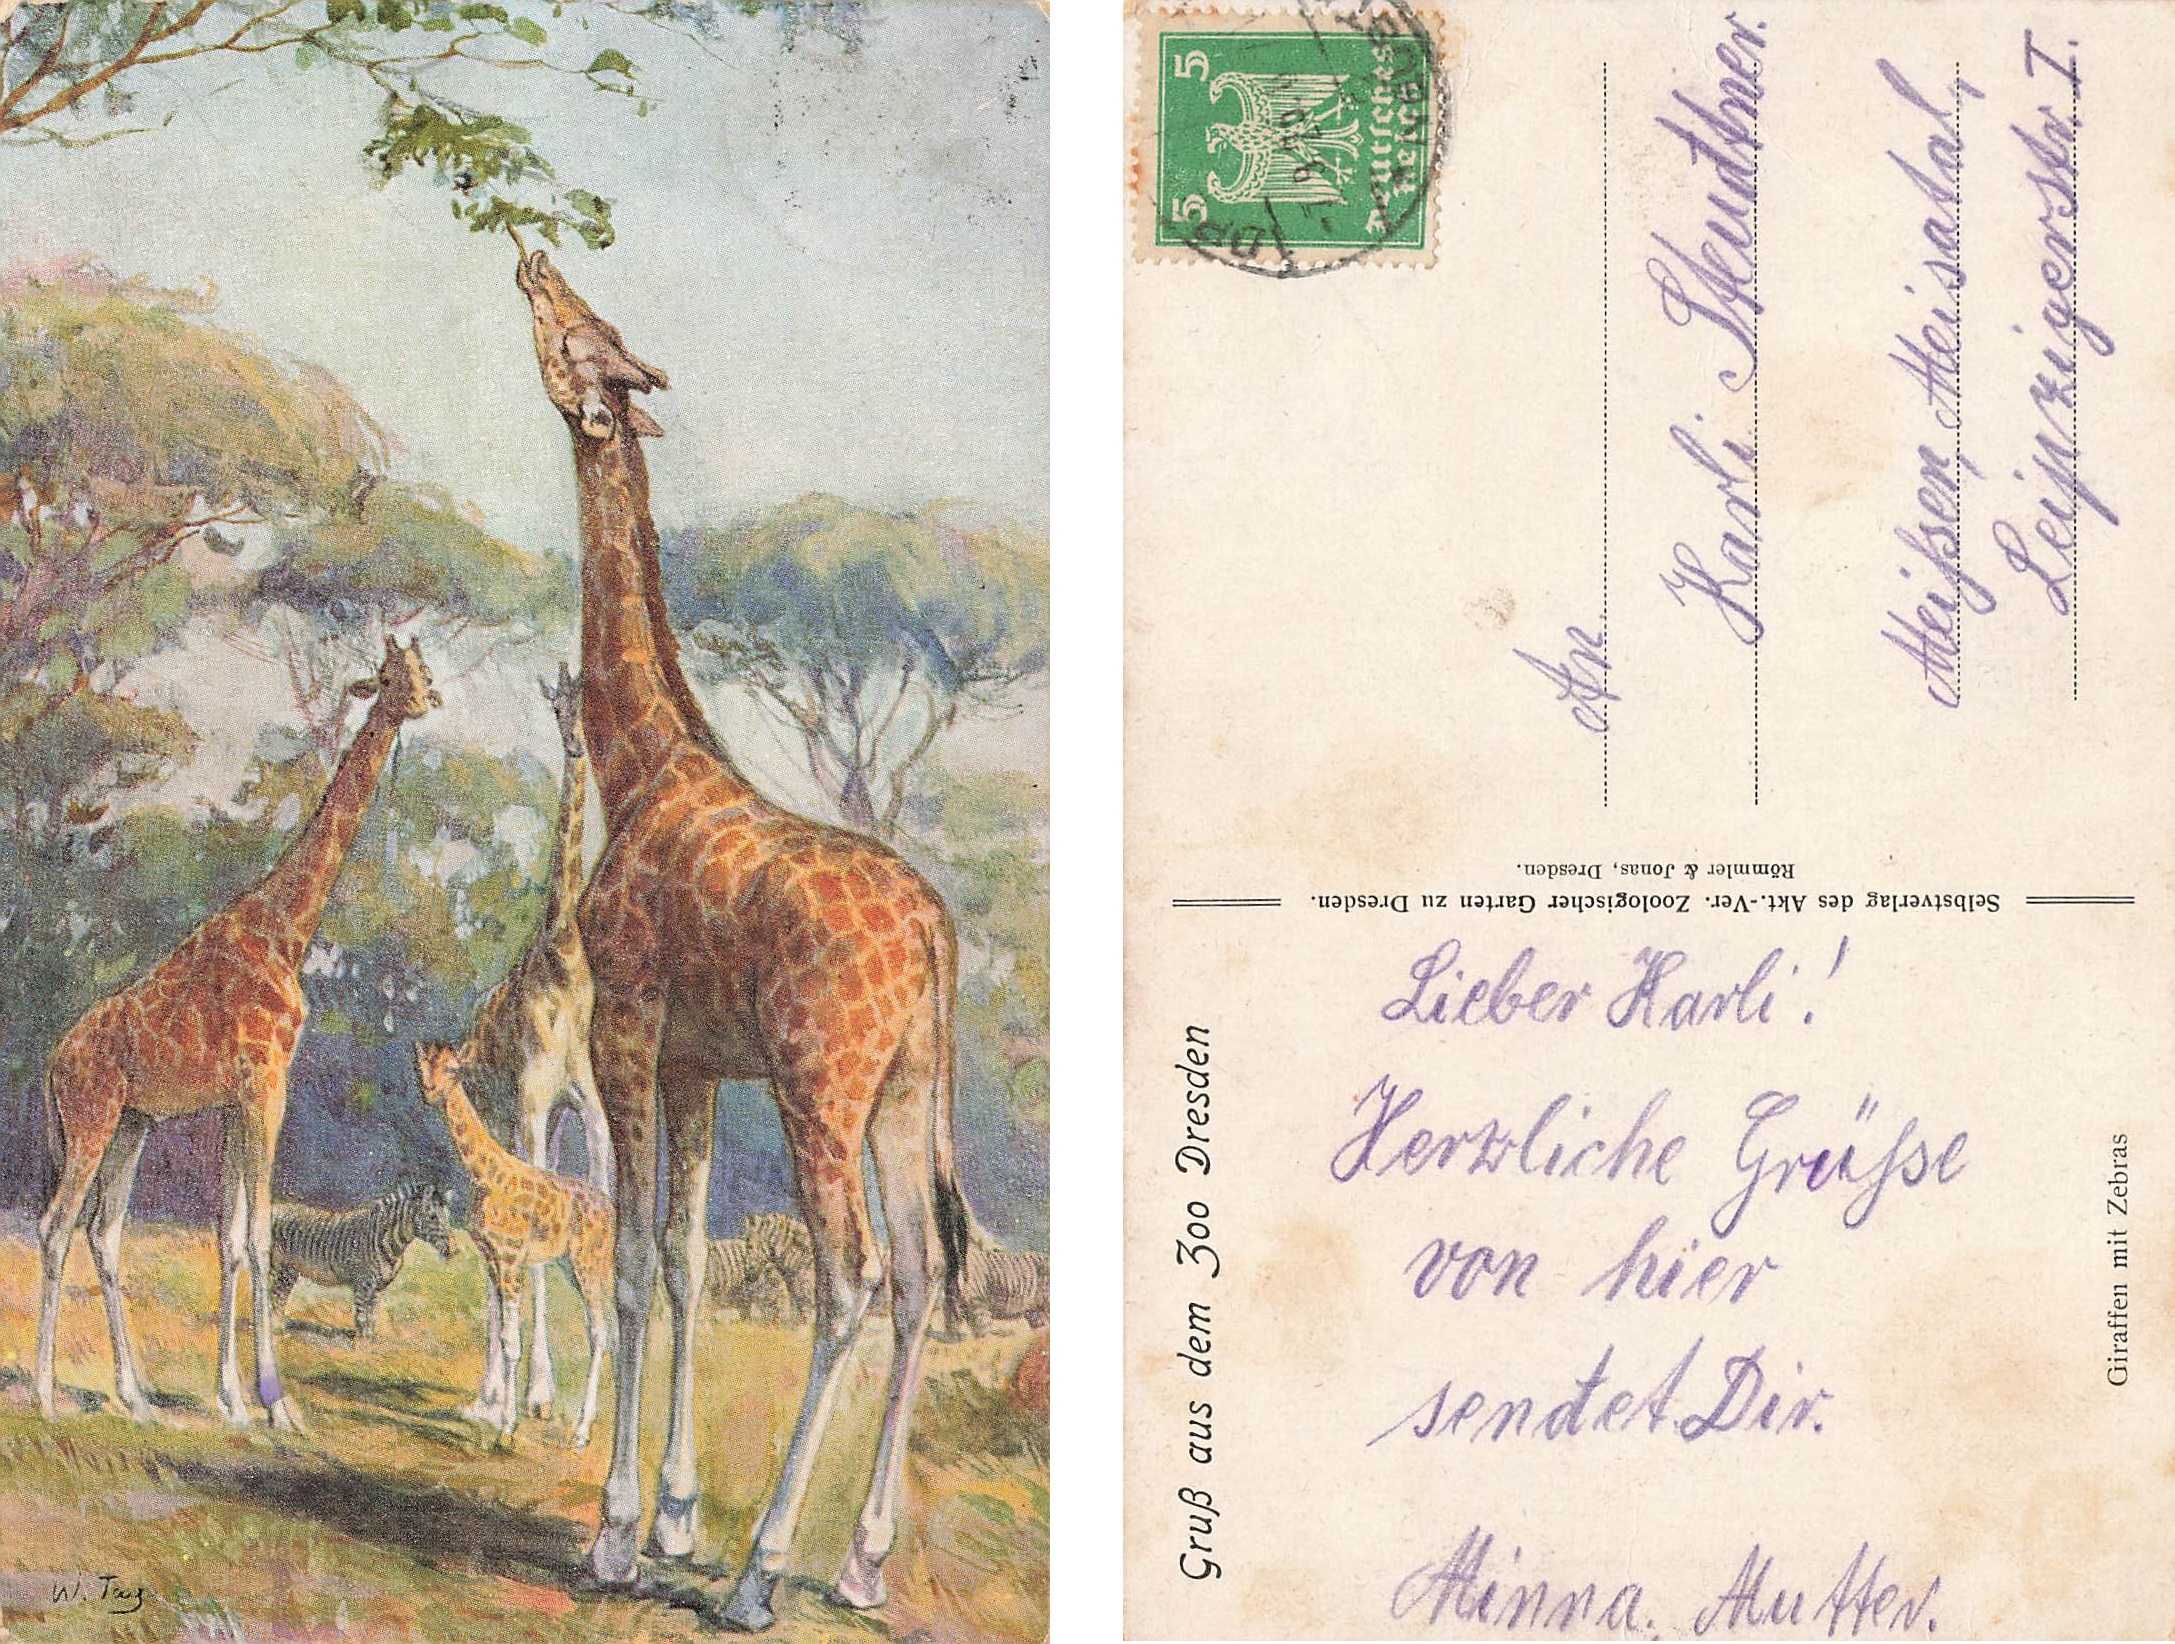 W. Tag
5
5
Deutsches
Reich
An
Karli Steudtner.
Meißen, Meisatal,
Leipzigerstr. I.
Römmler & Jonas, Dresden.
Selbstverlag des Akt.-Ver. Zoologischer Garten zu Dresden.
Gruß aus dem Zoo Dresden
Giraffen mit Zebras
Lieber Karli!
Herzliche Grüsse
von hier
sendet Dir.
Minna. Mutter.